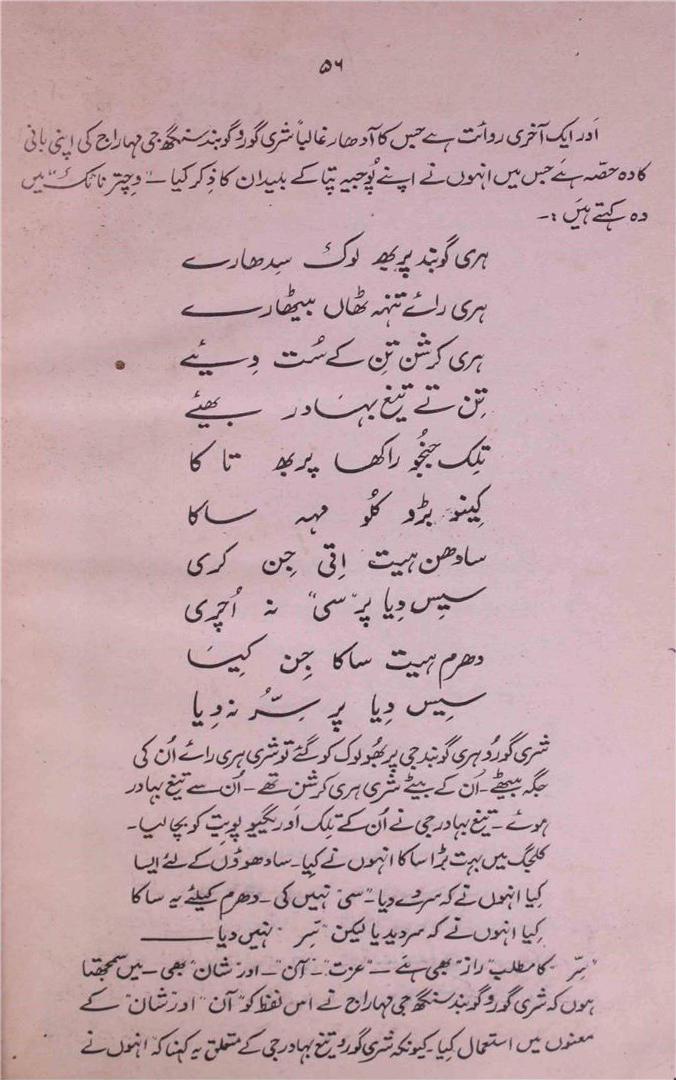 ۵۶
اَور ایک آخری روائت ہے جس کا آدھار غالباً شری گورو گوبند سنگھ جی مہاراج کی اپنی بانی
کا وہ حصّہ ہے جس میں انہوں نے اپنے پُوجیہ پتا کے بلیدان کا ذِکر کیا۔ "وِچتر ناٹک" میں
وہ کہتے ہیں :۔
ہری گوبند پربھ لوک سِدھارے
ہری رائے تنہہ ٹھاں بیٹھارے
ہری کرشن تِن کے سُت وِیئے
تِن تے تیغ بہادر بھیئے
تِلک جنجُو راکھا پربھ تا کا
کینو بڑو کلُو مہہ ساکا
سادھن ہیت اِتی جِن کری
سیس دِیا پر "سی" نہ اُچری
دھرم ہیت ساکا جِن کیَا
سیس دِیا پر سِرُّ نہ دِیا
شری گورُو ہری گوبند جی پربھُو لوک کو گئے تو شری ہری رائے اُن کی
جگہ بیٹھے۔ اُن کے بیٹے شری ہری کرشن تھے۔ اُن سے تیغ بہادر
ہوئے۔ تیغ بہادر جی نے اُن کے تِلک اَور یگیو پویت کو بچا لیا۔
کلجگ میں بہت بڑا ساکا انہوں نے کیا۔ سادھوؤں کے لئے ایسا
کِیا انہوں نے کہ سر دے دیا۔ "سی" نہیں کی۔ دھرم کیلئے یہ ساکا
کِیا انہوں نے کہ سر دیدیا لیکن "سِر" نہیں دیا ــــــ
"سِر" کا مطلب "راز" بھی ہے ۔ "عزت"۔ "آن"۔ اور "شان" بھی۔ میں سمجھتا
ہوں کہ شری گورو گوبند سنگھ جی مہاراج نے اس لفظ کو "آن" اور "شان" کے
معنوں میں استعمال کیا۔ کیونکہ شری گورو تیغ بہادر جی کے متعلق یہ کہنا کہ انہوں نے